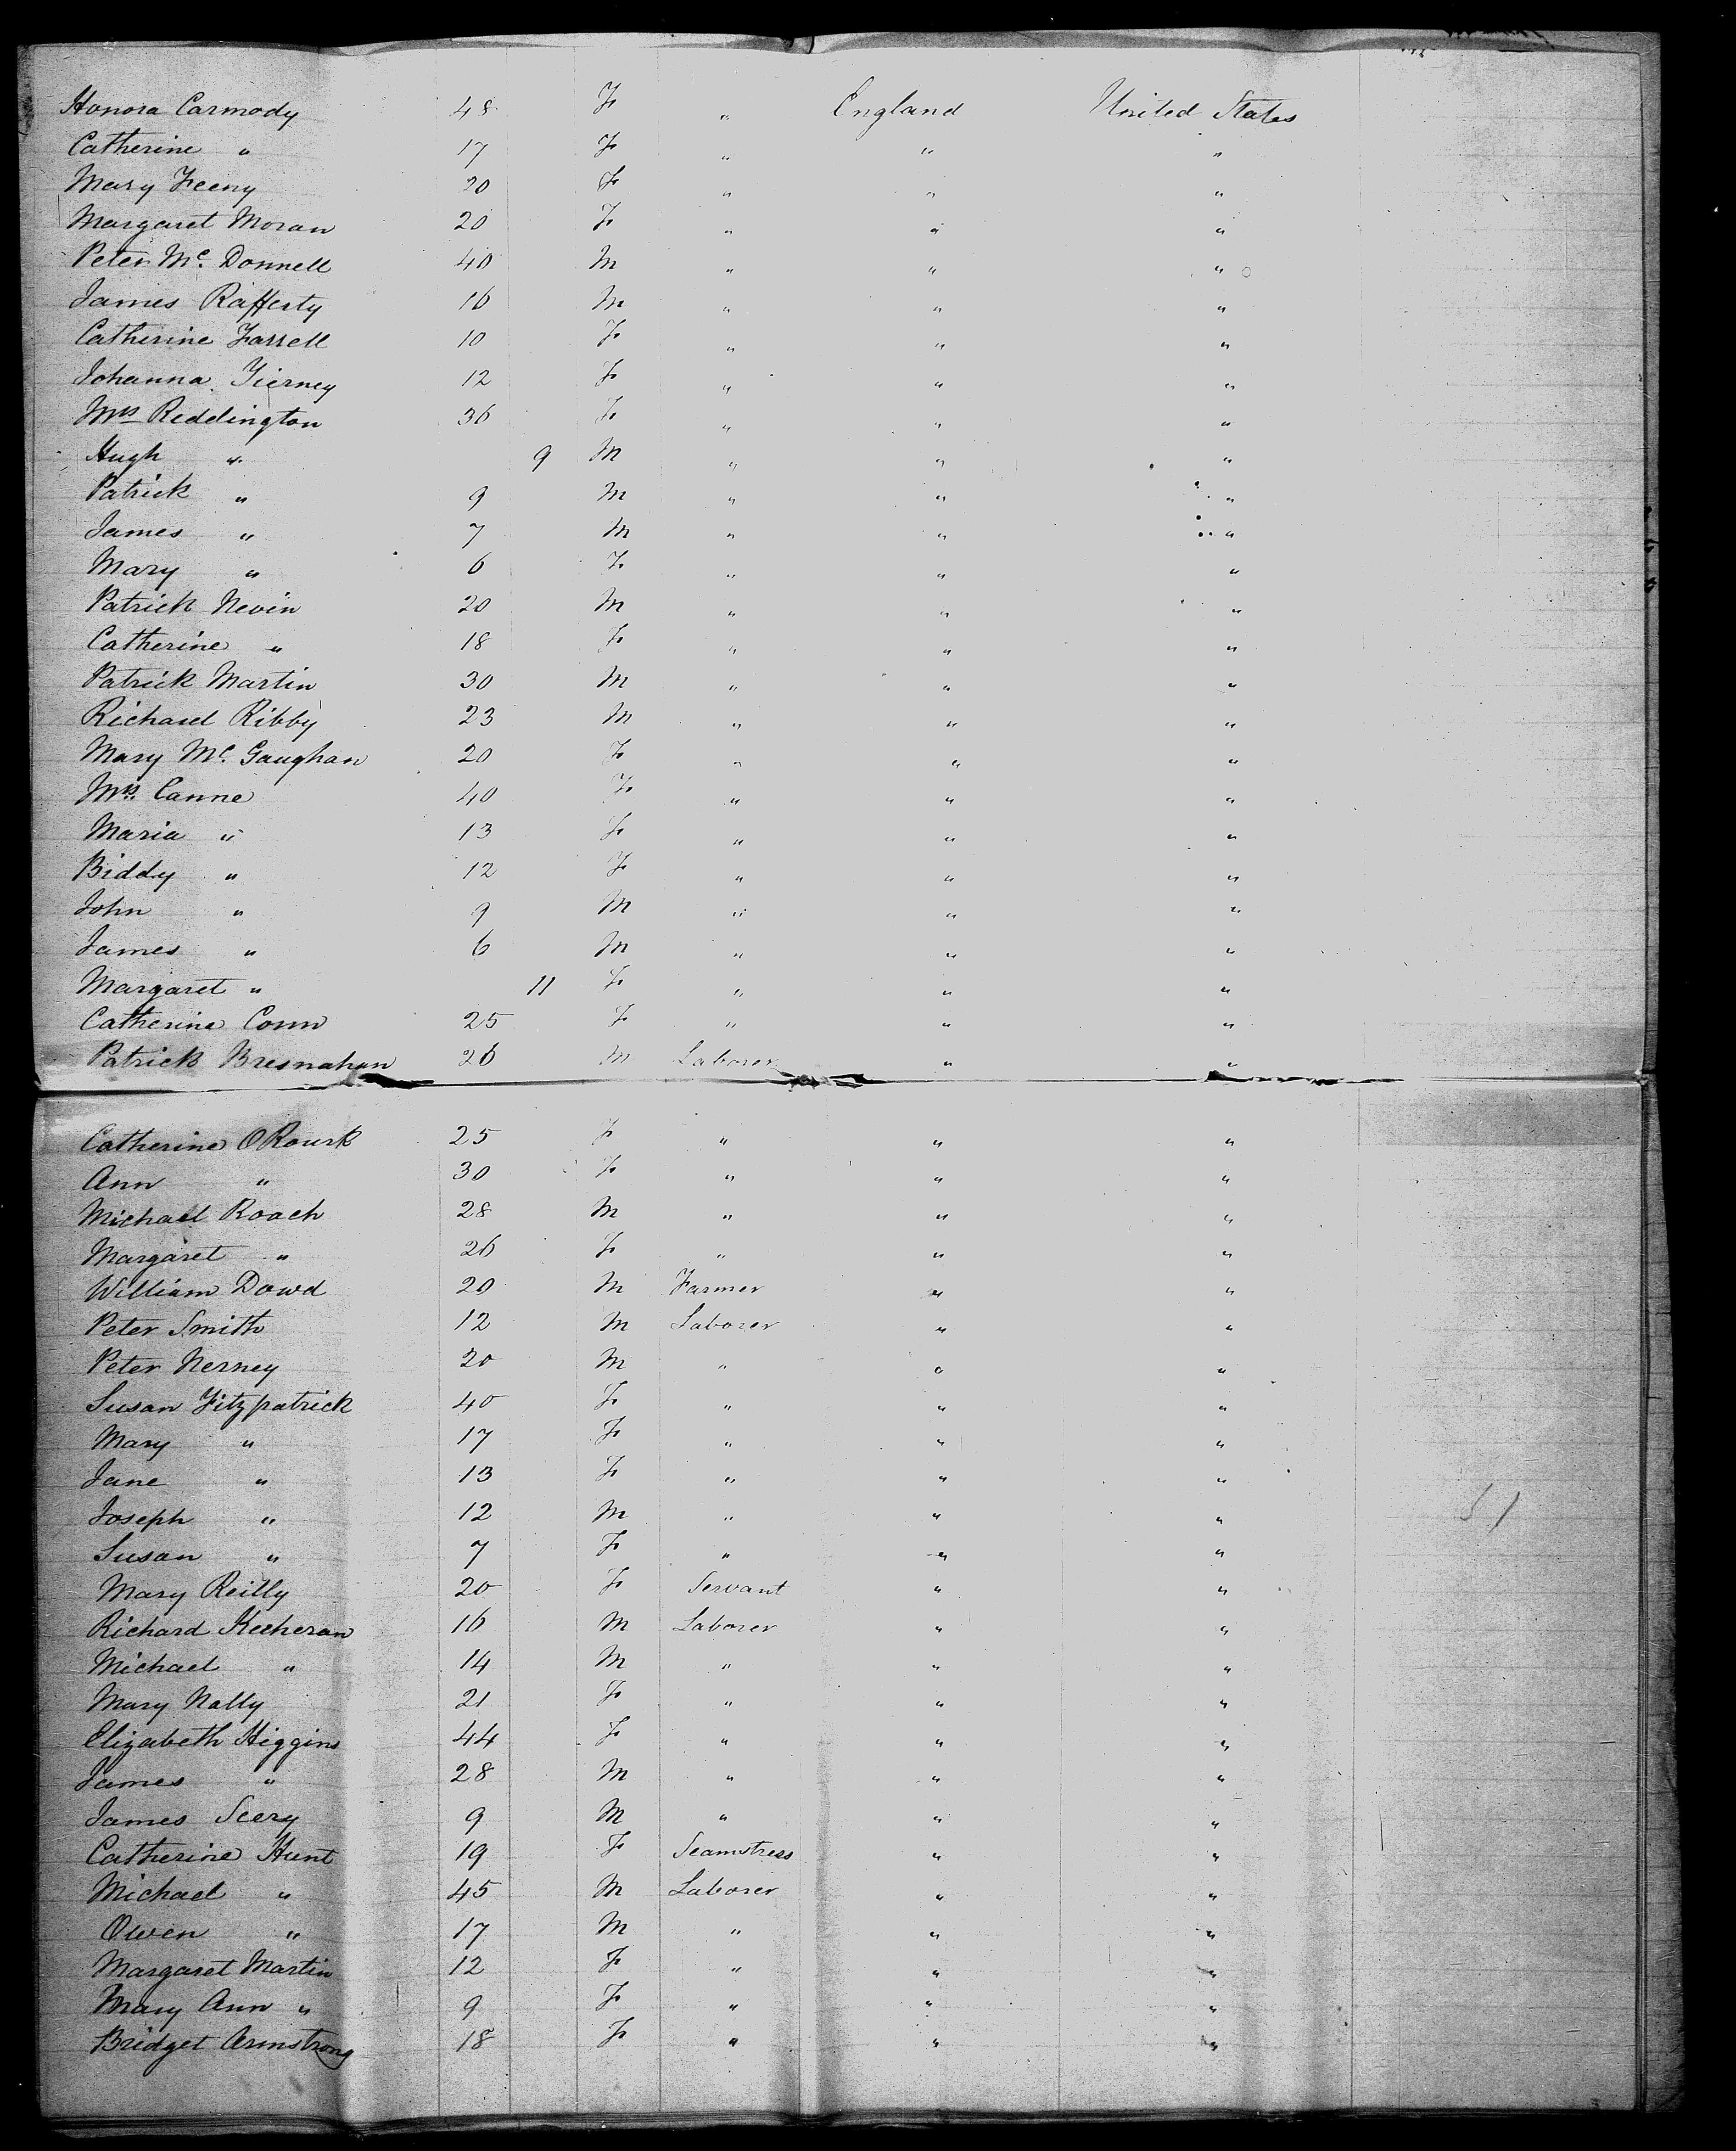 Honora Carmody 48 F " England United States
Catherine " 17 F " " "
Mary Feeny 20 F " " "
Margaret Moran 20 F " " "
Peter Mc. Donnell 40 M " " "
James Rafferty 16 M " " "
Catherine Farrell 10 F " " "
Johanna Tierney 12 F " " "
Mrs Reddington 36 F " " "
Hugh " 9 M " " "
Patrick " 9 M " " "
James " 7 M " " "
Mary " 6 F " " "
Patrick Nevin 20 M " " "
Catherine " 18 F " " "
Patrick Martin 30 M " " "
Richard Ribby 23 M " " "
Mary Mc. Gaughan 20 F " " "
Mrs. Canne 40 F " " "
Maria " 13 F " " "
Biddy " 12 F " " "
John " 9 M " " "
James " 6 M " " "
Margaret " 11 F " " "
Catherine Conn 25 F " " "
Patrick Bresnahan 26 M Laborer " "
Catherine ORourk 25 F " " "
Ann " 30 F " " "
Michael Roach 28 M " " "
Margaret " 26 F " " "
William Dowd 20 M Farmer " "
Peter Smith 12 M Laborer " "
Peter Nerney 20 M " " "
Susan Fitzpatrick 40 F " " "
Mary " 17 F " " "
Jane " 13 F " " "
Joseph " 12 M " " "
Susan " 7 F " " "
Mary Reilly 20 F Servant " "
Richard Keeheran 16 M Laborer " "
Michael " 14 M " " "
Mary Nally 21 F " " "
Elizabeth Higgins 44 F " " "
James " 28 M " " "
James Seery 9 M " " "
Catherine Hunt 19 F Seamstress " "
Michael " 45 M Laborer " "
Owen " 17 M " " "
Margaret Martin 12 F " " "
Mary Ann " 9 F " " "
Bridget Armstrong 18 F " " "